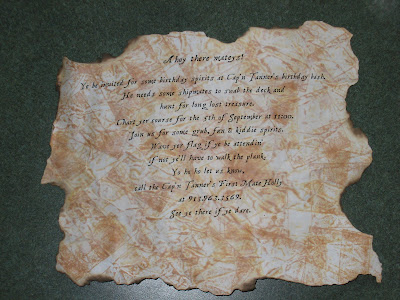 Ahoy there mateys!
Ye be invited for some birthday spirits at Cap'n Tanner's birthday bash.
He needs some shipmates to swab the deck and
hunt for long lost treasure.
Chart yer course for the 5th of September at
Join us for some grub, fun & kiddie spirits.
Wave yer flag if ye be attendin'
if not ye'll have to walk the plank.
Yo ho ho let us know,
call the Cap'n Tanner's First Mate Holly
at
See ye there if ye dare.